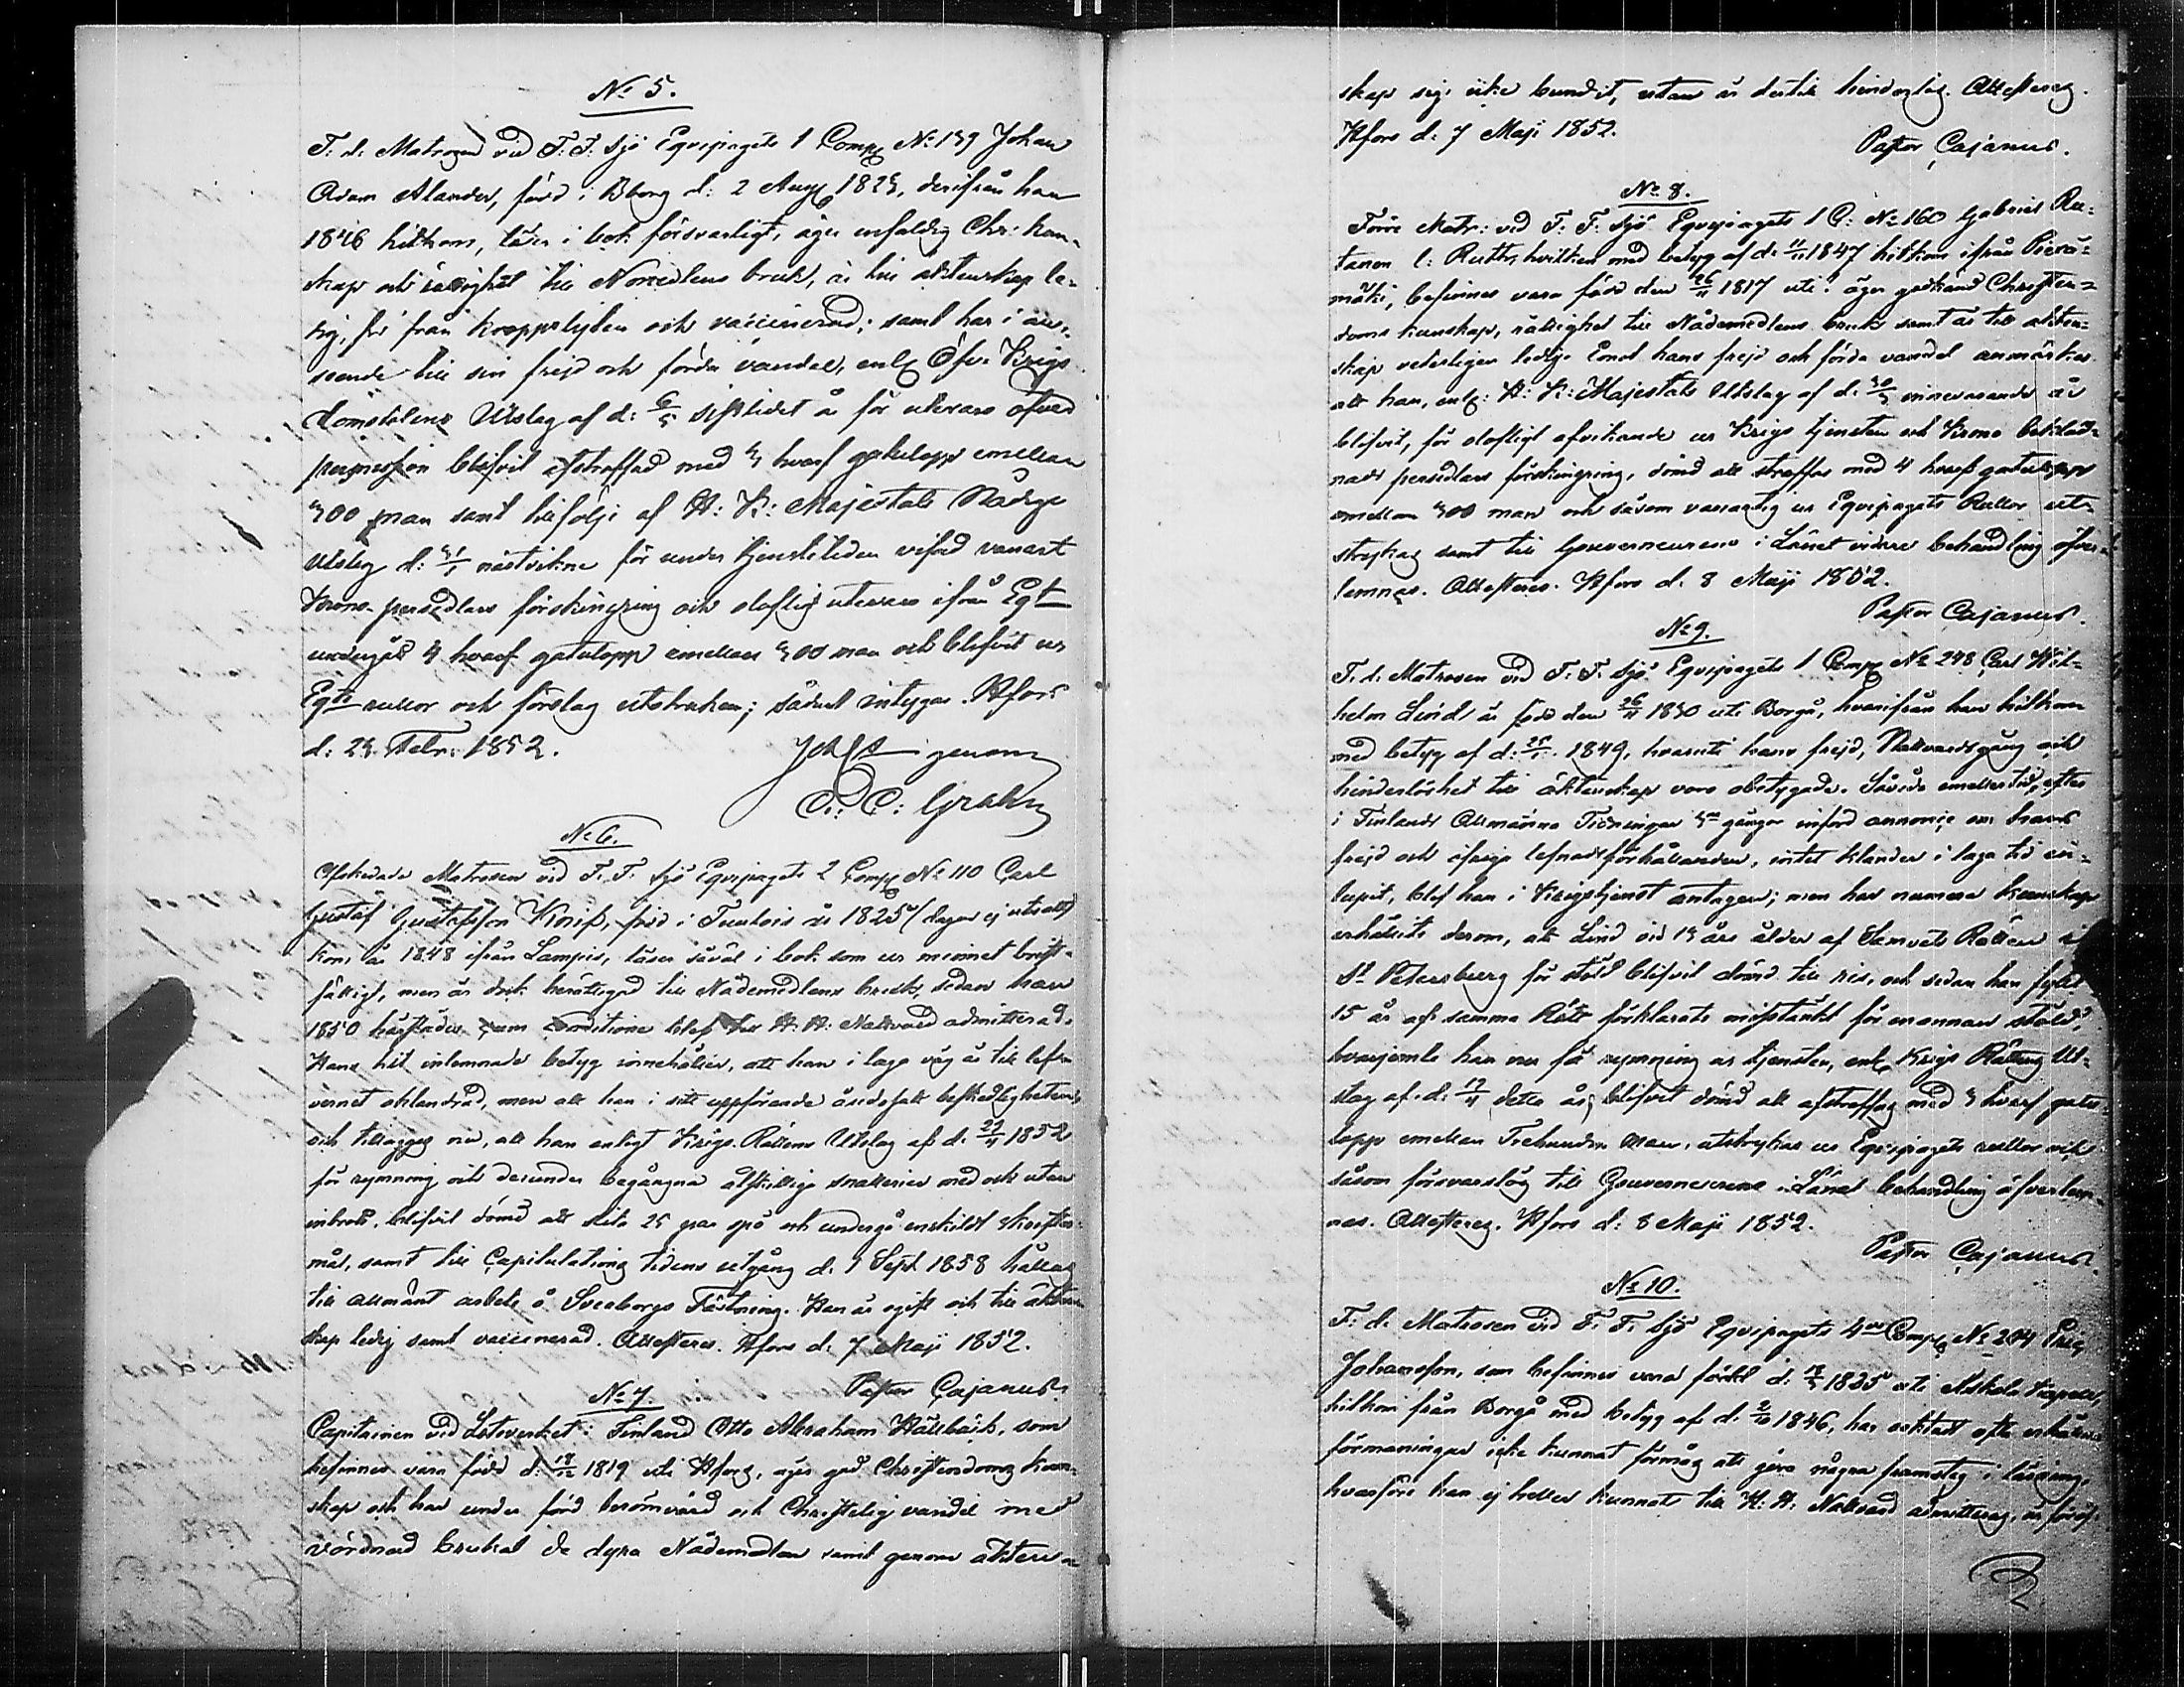 No 5.
F. d. Matrosen vid F. F. Sjö Eqvipagets 1 Comp. No 139 Johan
Adam Alander, född i Bborg d: 2 Aug 1823, derifrån han
1846 hitkom, läser i bok försvarligt, äger enfaldig Chr: kun-
skap och rättighet till Nåmedlens bruk, är till äktenskap le-
dig, fri från kroppslyten och vaccinerad; samt har i an-
seende till sin frejd och förda vandel, enl. Öfv. Krigs
domstolens Utslag af d: 6/5 sistlidet år för utevaro
blifvit afstraffad med 3 hvarf gatulopp emellan
300 man samt tillfölje af H: K: Majestäts Nådiga
Utslag d: 31/1 nästvikne för under tjenstetiden visad vanart
Krono-persedlars förskingring och oloflig utevaro ifrån Eqt
undergått 4 hvarf gatulopp emellan 300 man och blifvit ur
Eqts rullor och förslag utstruken; sådant intygar. Hfors
d: 23 Febr: 1852.
C: Grahn
No 6.
Afskedade Matrosen vid F. F. Sjö Eqvipagets 2 Comp No 110 Carl
Gustaf Gustafsson Knif, född i Tuulois år 1825 (dagen ej utsatt)
kom år 1848 ifrån Lampis, läser såväl i bok som ur minnet brist-
fälligt, men är dock berättigad till Nådemedlens bruk, sedan han
1850 härstädes sum conditione blef till H. H. Nattvard admitterad.
Hans hit inlemnade betyg innehåller, att han i laga väg är till lef-
vernet oklandrad, men att han i sitt uppförande åsidosatt beskedligheten,
och tillägges nu, att han enligt Krigs-Rättens Utslag af d. 29/4 1852
för rymning och derunder begångna åtskillige snatterier med och utan
inbrott, blifvit dömd att slita 25 par spö och undergå enskildt skrifter-
mål, samt till Capitulations tidens utgång d. 1 Sept 1858 hållas
till allmänt arbete å Sveaborgs Fästning. Han är ogift och till äkten-
skap ledig samt vaccinerad. Attesteras. Hfors d. 7 Maji 1852.
Pastor Cajanus.
No 7.
Capitainen vid Lotsverket i Finland Otto Abraham Hällbäck, som
befinnes vara född d: 18/12 1819 uti Hfors, äger god Christendoms kun-
skap och har under förd berömvärd och Christelig vandel med
vördnad brukat de dyra Nådemedlen samt genom äkten-
skap sig icke bundit, utan är dertill hinderslös. Attesteras.
Hfors d: 7 Maji 1852.
Pastor Cajanus.
No 8.
Förre Matr: vid F. F. Sjö Eqvipagets 1 C: No 160 Gabriel Ru-
tanen l: Ruth, hvilken med betyg af d: 11/11 1847 hitkom ifrån Piexä-
mäki, befinnes vara född den 26/11 1817 uti? äger godkänd Christen-
doms kunskap, rättighet till Nådemedlens bruk samt är till äkten-
skap vederligen ledig. Emot hans frejd och förda vandel anmärkes
att han, enl: H: K: Majestäts Utslag af d. 30/3 innevarande år
blifvit, för olofligt afvikande ur Krigs tjensten och Krono beklad-
nads persedlars förskingring, dömd att straffas med 4 hvarf gatulopp
emellan 300 man och såsom vanartig ur Eqvipagets Rullor ut-
strykas samt till Gouverneurens i Länet vidare behandling öfver-
lemnas. Attesteras. Hfors d. 8 Maji 1852.
Pastor Cajanus.
No 9.
F. d. Matrosen vid F. F. Sjö Eqvipagets 1 Comp No 248 Carl Wil-
helm Lind är född den 26/11 1830 uti Borgå, hvarifrån han hitkom
med betyg af d: 25/1 1849, hvaruti hans frejd, Nattvardsgång och
hinderlöshet till äktenskap voro obetygade. Såvida emellertid, efter
i Finlands Allmänna Tidningar 3ne gånger införd annonce om hans
frejd och öfriga lefnadsförhållanden, intet klander i laga tid in-
lupit, blef han i Krigstjenst antagen; men har numera kunskap
erhållits derom, att Lind vid 13 års ålder af Samvets Rätten i
St Petersburg för stöld blifvit dömd till ris, och sedan han fyllt
15 år af samma Rätt förklarats misstänkt för en annan stöld;
hvarjemte han nu för rymning ur tjensten, enl. Krigs Rättens Ut-
slag af d. 17/4 detta år, blifvit dömd att afstraffas med 3 hvarf gatu-
lopp emellan Trehundra man, utstrykas ur Eqvipagets rullor och
såsom försvarslös till Gouverneurens i Länet behandling öfverlem-
nas. Attesteras. Hfors d: 8 Maji 1852.
Pastor Cajanus.
No 10.
F. d. Matrosen vid F. F. Sjö Eqvipagets 4de Comp No 204 Eric
Johansson, som befinnes vara född d: 1835 uti Askola Capell,
hitkom från Borgå med betyg af d. 2/10 1846, har oaktadt ofta erhållna
förmaningar icke kunnat förmås att göra några framsteg i läsning,
hvarföre han ej heller kunnat till H. H. Nattvard admitteras, är för öf-